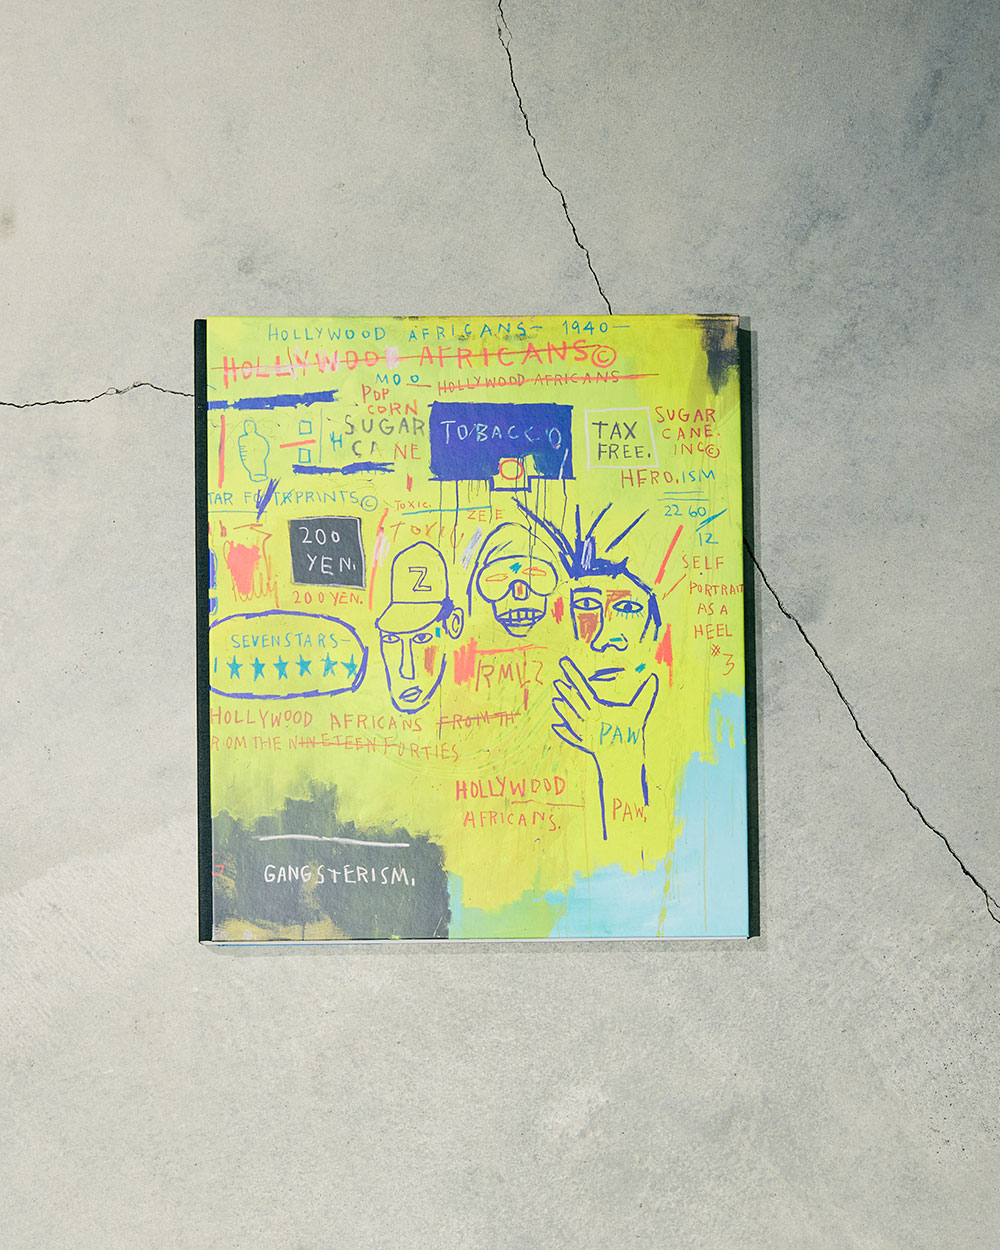 HOLLYWOOD AFRICANS— 1940—
HOLLYWOOD AFRICANS©
HOLLYWOOD AFRICANS
POP
CORN
SUGAR
CANE
TOBACCO
TAX
FREE.
SUGAR
CANE.
INC©
HERO.ISM
22 60
12
TAR FOOTPRINTS©
TOXIC.
TOXIC
200
YEN.
200 YEN.
Z
SELF
PORTRAIT
AS A
HEEL
#3
SEVEN STARS—
HOLLYWOOD AFRICANS FROM TH
ROM THE NINETEEN FORTIES
PAW
HOLLYWOOD
AFRICANS.
PAW.
GANGSTERISM.